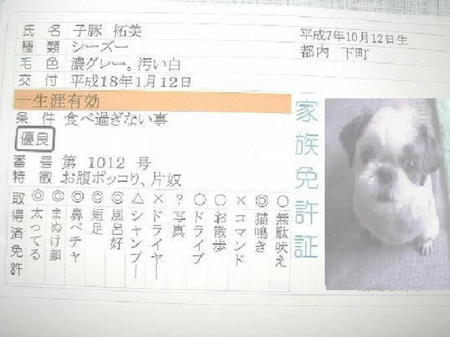 氏名 子豚 拓美
平成7年10月12日生
種類 シーズー
都内 下町
毛色 濃グレー。汚い白
交付 平成18年1月12日
一生涯有効
条件 食べ過ぎない事
優良
番号 第 1012 号
特徴 お腹ポッコリ、片奴
家族免許証
○無駄吠え
◎猫鳴き
×コマンド
○お散歩
○ドライブ
?写真
×ドライヤー
△シャンプー
◎風呂好
◎短足
◎鼻ペチャ
◎まぬけ顔
◎太ってる
取得済免許